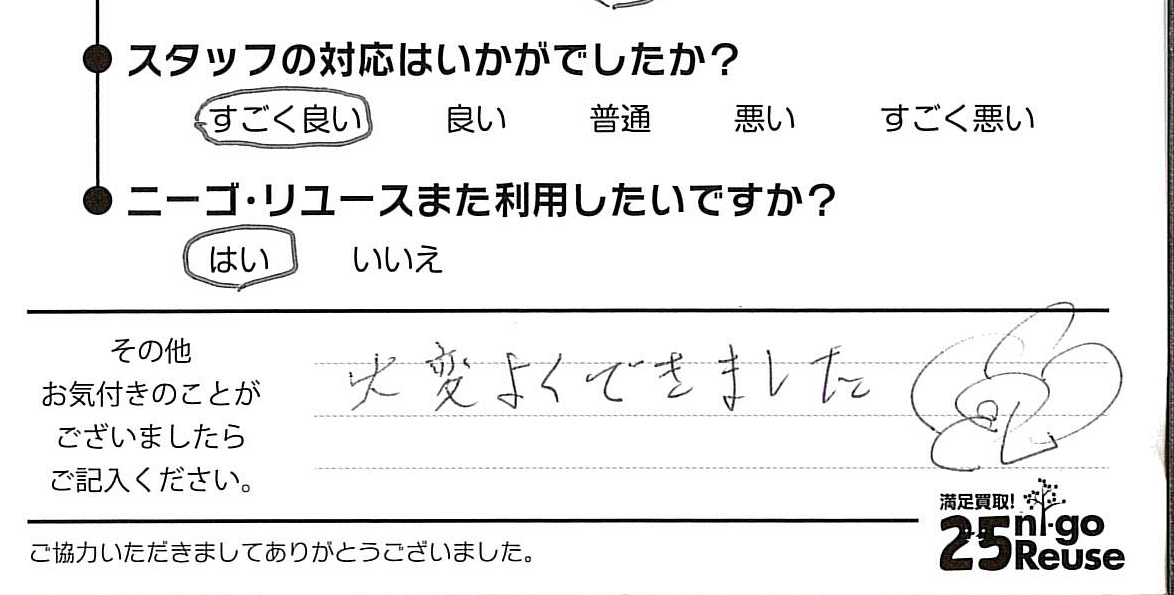 スタッフの対応はいかがでしたか?
すごく良い 良い 普通 悪い すごく悪い
ニーゴ・リユースまた利用したいですか?
はい いいえ
その他
お気付きのことが
ございましたら
ご記入ください。
大変よくできました
満足買取!
25 ni-go
Reuse
ご協力いただきましてありがとうございました。